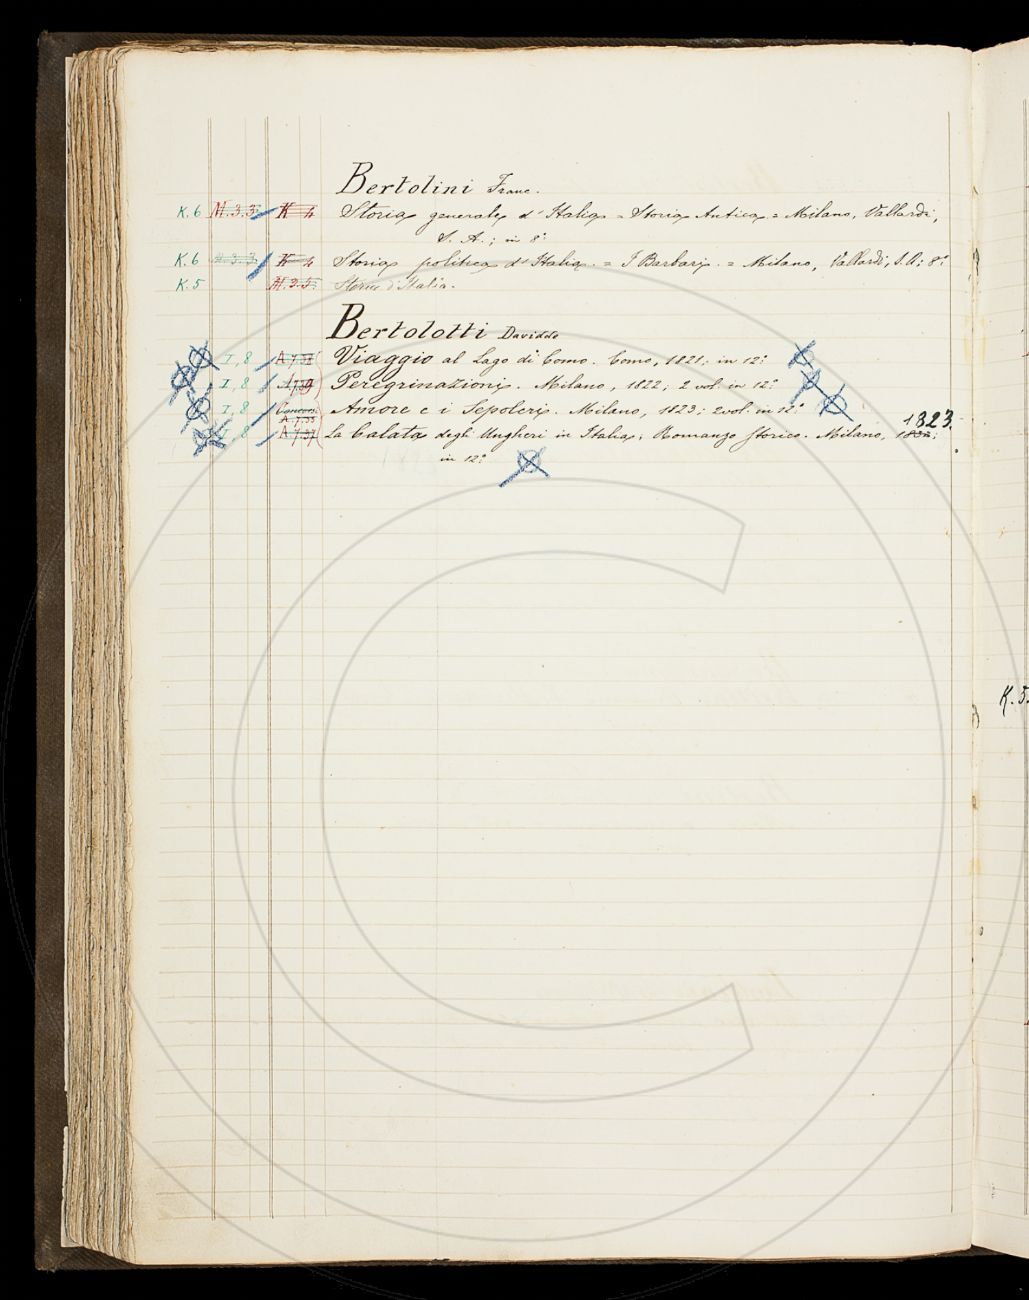 Bertolini Franc.
K. 6 M. 3. 3. K 4 Storia generale d'Italia = Storia Antica = Milano, Vallardi,
S. A.; in 8°
K. 6 K 4 Storia politica d'Italia. = I Barbari. = Milano, Vallardi, S. A; 8°
K. 5 M. 3. 3. Storia d'Italia.
Bertolotti Davidde
I, 8 Viaggio al Lago di Como. Como, 1821; in 12°
I, 8 Peregrinazioni. Milano, 1822; 2 vol. in 12°
I, 8 Amore e i Sepolcri. Milano, 1823; 2 vol. in 12°
1823.
I 8 La Calata degli Ungheri in Italia, Romanzo storico. Milano,
in 12°
K. 5.